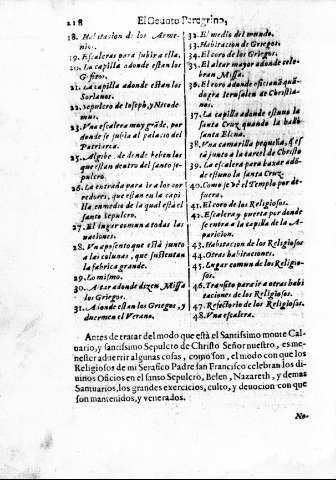 218 El Deuoto Peregrino,
18. Habitacion de los Arme-
nios.
19. Escaleras para subir a ella.
20. La capilla adonde estan los
Gofitos.
21. La capilla adonde estan los
Sorianos.
22. Sepulcro de Ioseph, y Nicode-
mus.
23. Vna escalera muy grāde, por
donde se subia al palacio del
Patriarca.
25. Algibe, de donde beben los
que estan dentro del santo se-
pulcro.
26. La entrada para ir a los cor
redores, que estan en la capi
lla en medio de la qual està el
santo sepulcro.
27. El lugar comun a todas las
naciones.
28. Vn aposento que està junto
a las colunas, que sustentan
la fabrica grande.
29. Lo mismo.
30. Altar adonde dizen Missa
los Griegos.
31. Adonde estan los Griegos, y
duermen el Verano.
32. El medio del mundo.
33. Habitacion de Griegos.
34. El coro de los Griegos.
35. El altar mayor adonde cele-
bran Missa.
36. El coro adonde oficiauā quā-
do era Ierusalen de Christia-
nos.
37. La capilla adonde estuuo la
santa Cruz quando la hallò
santa Elena.
38. Vna camarilla pequeña, q̃ es
tà junto a la carcel de Christo
39. La escalera para baxar adō-
de estuuo la santa Cruz.
40. Como se vè el Templo por de-
fuera.
41. El coro de los Religiosos.
42. Escalera y puerta por donde
se entra a la capilla de la A-
paricion.
43. Habitacion de los Religiosos
44. Otras habitaciones.
45. Lugar comun de los Religio-
sos.
46. Transito para ir a otras habi
taciones de los Religiosos.
47. Refectorio de los Religiosos.
48. Vna escalera.
Antes de tratar del modo que està el Santissimo monte Cal-
uario, y santissimo Sepulcro de Christo Señor nuestro, es me-
nester aduertir algunas cosas, como son, el modo con que los
Religiosos de mi Serafico Padre san Francisco celebran los di-
uinos Oficios en el santo Sepulcro, Belen, Nazareth, y demas
Santuarios, los grandes exercicios, culto, y deuocion con que
son mantenidos, y venerados.
No-